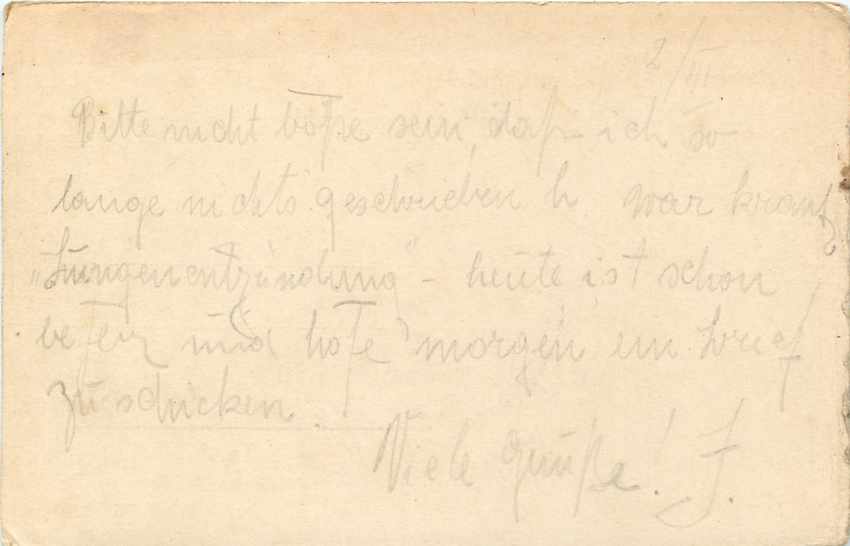 2/III
Bitte nicht böße sein, daß ich so
lange nichts geschrieben h. war krank
„Lungenentzündung“ - heute ist schon
beßer und hoffe morgen ein Brief
zu schicken.
Viele Grüße! J.